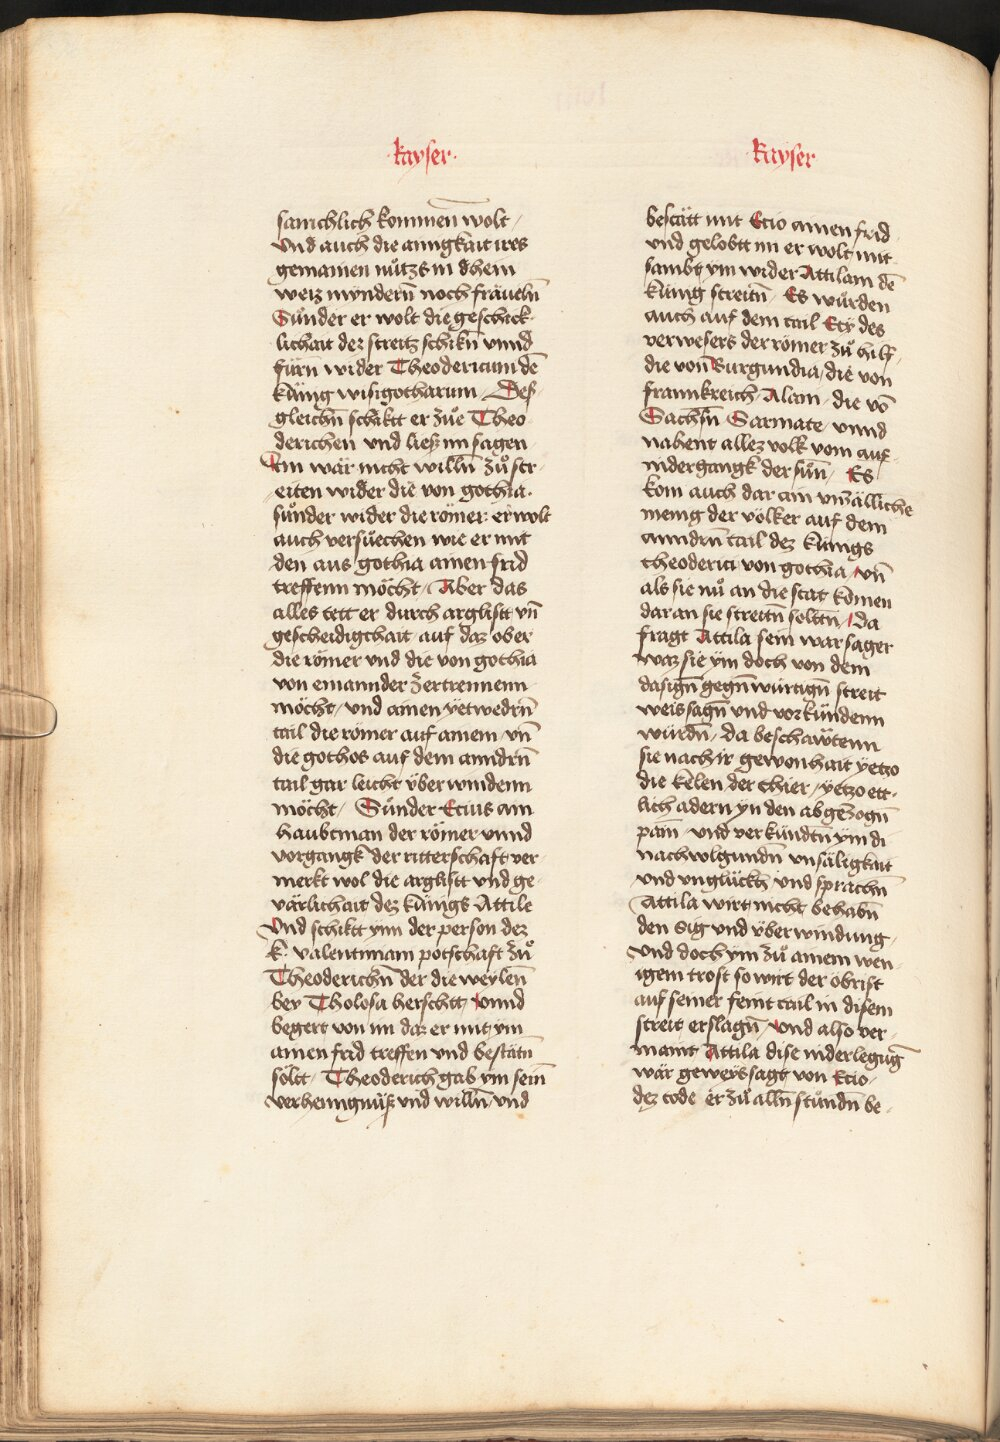 ·kayser·
samchlich kommen wolt /
vnd auch die ainigkait ires
gemainen nůtzs in dhein
weiz myndern̄ noch fräueln̄
Sůnder er wolt die geschick-
lichait dez streitz schikn̄ vnnd
fürn̄ wider Theodericum dē
kůnig wisigotharum / Des-
gleichn̄ schiktt er zůe Theo-
derichen vnd liesz im sagen
Im wär nicht willn̄ zů str-
eiten wider die von gothia.
sůnder wider die römer: er wolt
auch versůechen wie er mit
den aus gothia ainen frid
treffenn möcht / Aber das
alles tett er durch arglistt vn̄
gescheidigkhait auf daz ober
die römer vnd die von gothia
von einannder zertrennenn
möcht / vnd ainen yetwedrn̄
tail die römer auf ainem / vn̄
die gothos auf dem anndrn̄
tail gar leicht vͤber windenn
möcht / Sůnder Etius ain
haubtman der römer vnnd
vorgangk der ritterschaft ver-
merkt wol die arglistt vnd ge-
värlichait dez kůnigs Attile
Vnd schiktt ynn der person dez
k. valentiniani potschaft zů
Theoderichn̄ der die weylen̄
bey Tholosa herschtt / vnnd
begert von im daz er mit ym
ainen frid treffen vnd bestätn̄
soltt / Theoderich gab ym sein̄
verhenngnüsz vnd willn̄ / vnd
·kayser
bestätt mit Etio ainen frid
vnd gelobtt im er wolt mit
sambt ym wider Attilam dē
kůnig streitn̄ Es wůrden
auch auf dem tail Etÿ des
verwesers der römer zů hilf
die von Burgundia / die von
frannkreich / Alani / die vō
Sachsn̄ Sarmate / vnnd
nahent allez volk vom auf-
nidergangk der sůn̄ / Es
kom auch dar ain vnzälliche
menig der völker auf dem
anndrn̄ tail dez kůnigs
theoderici von gothia / vn̄
als sie nů an die stat kōmen
daran sie streitn̄ soltn̄ / da
fragt Attila sein warsager
waz sie ym doch von dem
dasign̄ gegn̄würtign̄ streit
weissagn̄ vnd vorkündenn
würdn̄ / da beschawtenn
sie nach ir gewonhait yetzo
die kelen der thier / yetzo ett-
lich adern yn den abgezogn̄
pain̄ / vnd verkündtn̄ ym di
nachuolgundn̄ vnsäligkait
vnd vnglückh / vnd sprachn̄
Attila wirt nicht behabn̄
den sig vnd vͤberwindung /
vnd doch ym zů ainem wen-
igem trost so wirt der obrist
auf seiner feint tail in disem
streit erslagn̄ / vnd also ver-
maint Attila dise niderlegūg
wär geweyssagt von Etio /
dez tode er zů alln̄ stůndn̄ be-